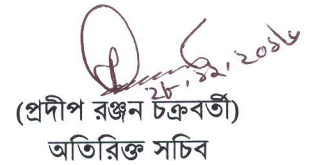 ২৮.১২.২০১৮
(প্রদীপ রঞ্জন চক্রবর্তী)
অতিরিক্ত সচিব